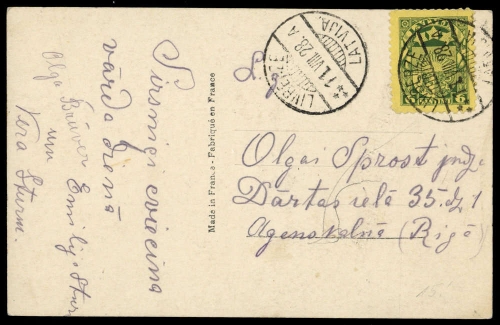 Sirsnīgi sveicina
vārda dienā
Olga Brūver
un Emilija Sturm
Vera Sturm.
Made in France - Fabriqué en France
LATVIJA
11 VIII 28. A
LATVIJA
5 5
Olgai Sprost jndze
Dārtas ielā 35. dz 1
Agenskalnā (Rīgā)